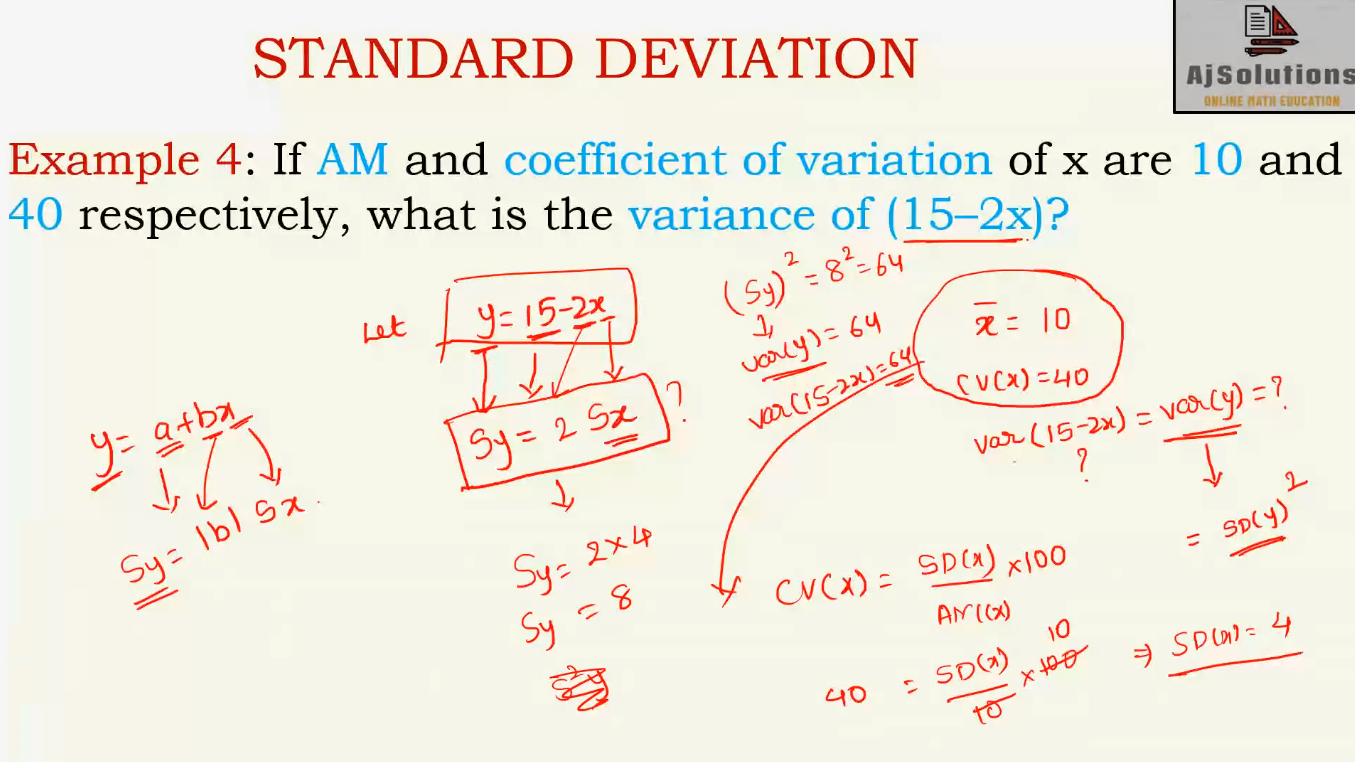 STANDARD DEVIATION
AjSolutions
ONLINE MATH EDUCATION
Example 4: If AM and coefficient of variation of x are 10 and
40 respectively, what is the variance of (15–2x)?
Let y = 15-2x
Sy = 2 Sx ?
Sy = 2×4
Sy = 8
y = a+bx
Sy = |b| Sx
(Sy)² = 8² = 64
var(y) = 64
var(15-2x) = 64
x̅ = 10
CV(x) = 40
var(15-2x) = var(y) = ?
?
= SD(y)²
CV(x) = SD(x) ×100
AM(x)
10
40 = SD(x) ×100 ⇒ SD(x) = 4
10